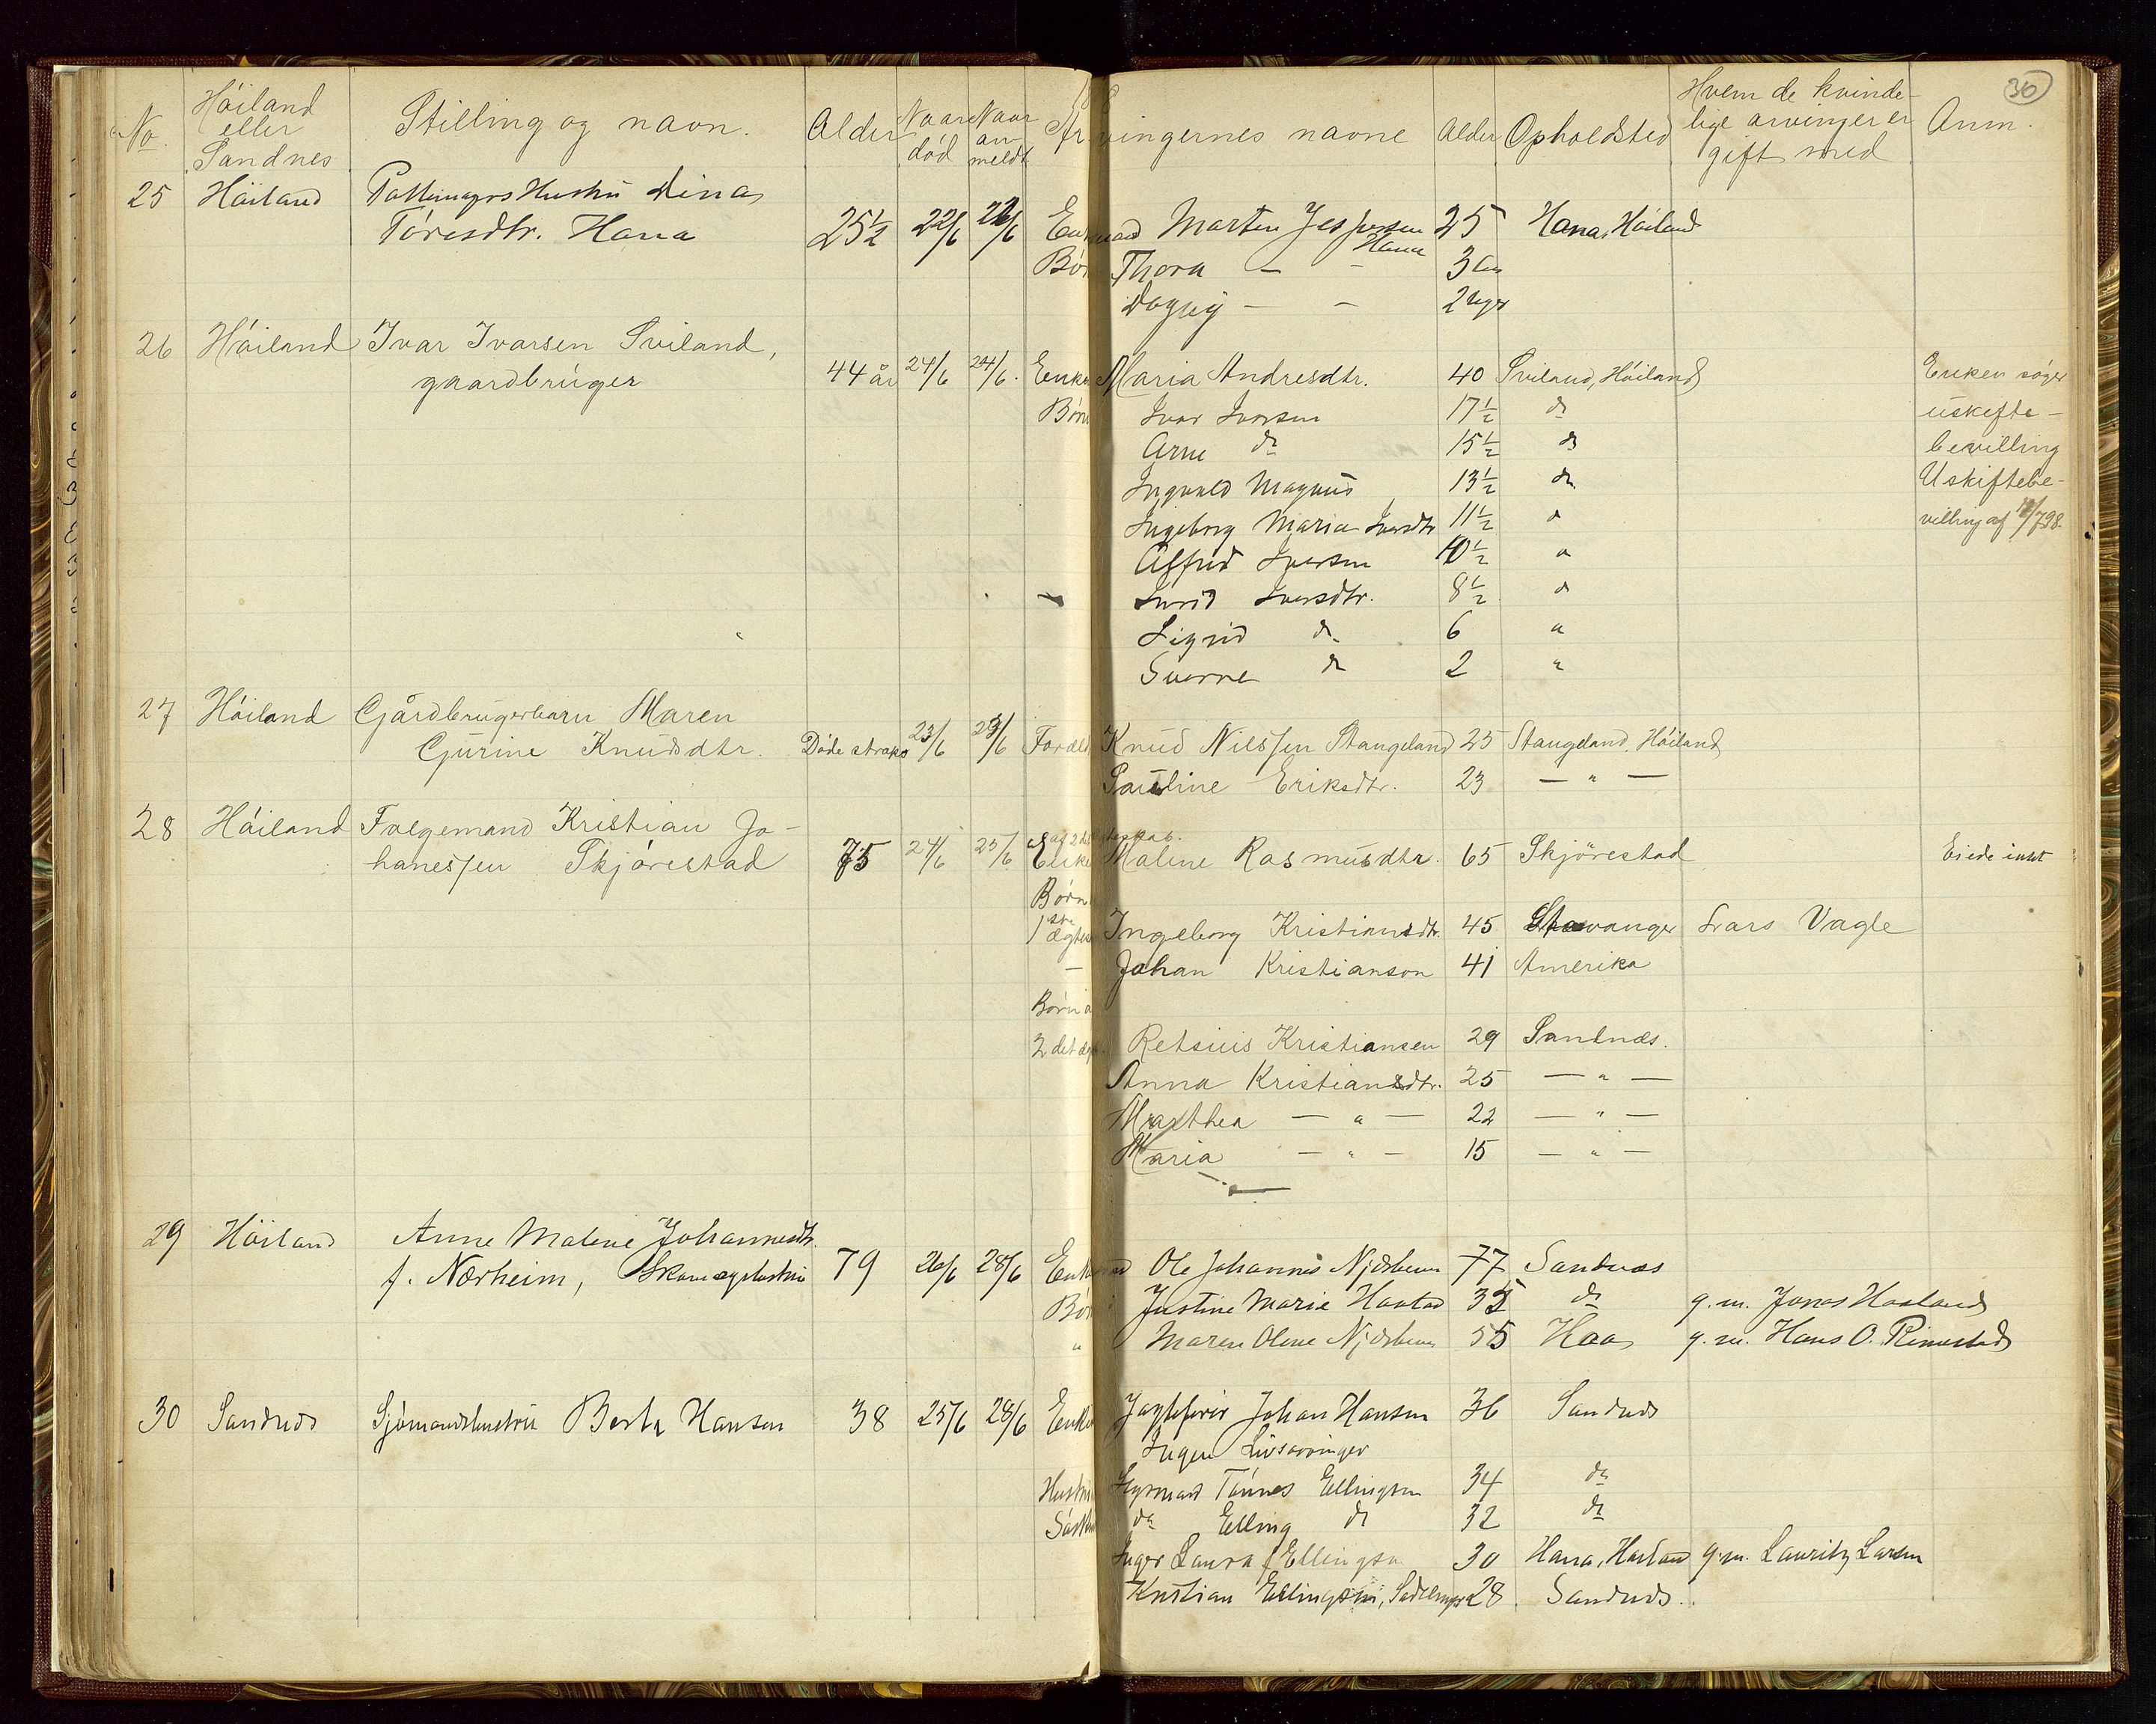 30
No. Höiland eller Sandnes Stilling og navn. Alder Naar død Naar anmeldt Arvingernes navne Alder Opholdsted Hvem de kvindelige arvinger er gift med Anm.
25 Höiland Pottemagers Hustru Dina
Töresdtr. Hana 25½ 22/6 22/6 Enkemand Morten Jespersen Hana 25 Hana, Höiland
Börn Thora — — 3 år
Dagny — — 2 uger
26 Höiland Ivar Ivarsen Sviland,
gaardbruger 44 år 24/6 24/6. Enke Maria Andresdtr. 40 Sviland, Höiland Enken söger
Börn Ivar Ivarsen 17½ do uskifte-
Arne do 15½ do bevilling
Ingvald Magnus 13½ do Uskiftebe-
Ingeborg Maria Ivarsdtr 11½ " villing af /7 98.
Alfred Ivarsen 10½ "
Ivarsdtr. 8½ "
Sigrid do 6 "
Sverre do 2 "
27 Höiland Gårdbrugerbarn Maren
Gurine Knudsdtr. Döde straks 23/6 23/6 Foræld Knud Nilssen Stangeland 25 Stangeland, Höiland
Pauline Eriksdtr. 23 — " —
28 Höiland Folgemand Kristian Jo-
hanessen Skjörestad 75 24/6 25/6 Enke Maline Rasmusdtr. 65 Skjörestad Eiede intet
Börn
1ste ægtes Ingeborg Kristiansdtr. 45 Stavanger Lars Vagle
— Johan Kristianson 41 Amerika
Börn a
2det ægt. Retsius Kristiansen 29 Sandnæs.
Anna Kristiansdtr. 25 — " —
Marthea — " — 22 — " —
Maria — " — 15 — " —
29 Höiland Anne Malene Johannesdtr.
f. Nærheim, Skomagerhustru 79 26/6 28/6 Enkemand Ole Johannes Njærheim 77 Sandnæs
Börn Justine Marie Hauland 35 do g. m. Jonas Hauland
" Maren Olene Njærheim 55 Haa g. m. Hans O. Rimestad
30 Sandnæs Sjömandshustru Berta Hansen 38 25/6 28/6 Enke Jagtförer Johan Hansen 36 Sandnæs
Ingen Livsarvinger
Hustru Tönnes Ellingsen 34 do
Söskn do Elling do 32 do
Inger Laura Ellingsen 30 Hana, Höiland g. m. Lauritz Larsen
Kristian Ellingsen, Sadelmager 28 Sandnæs.